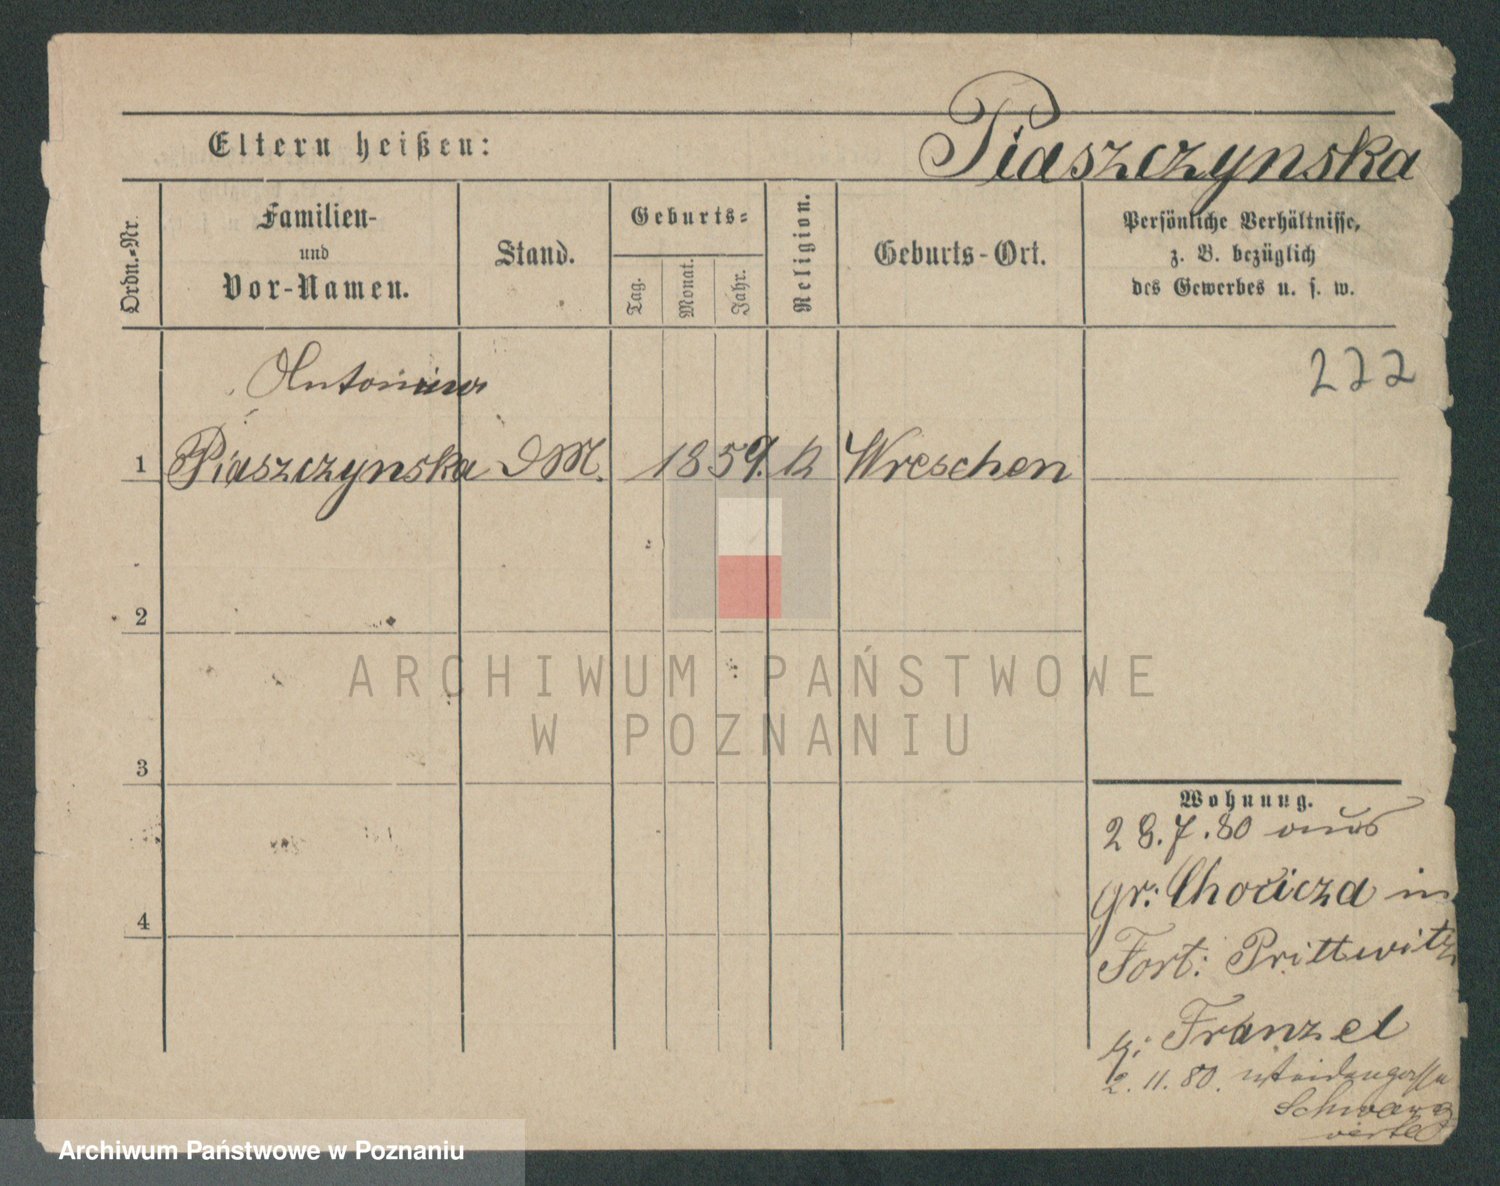 Piaszczynska
Eltern heißen:
Ordn.-Nr.
Familien-
und
Vor-Namen.
Stand.
Geburts-
Tag.
Monat.
Jahr.
Religion.
Geburts-Ort.
Persönliche Verhältnisse,
z. B. bezüglich
des Gewerbes u. s. w.
222
Antonina
1 Piaszczynska DM. 1859. k Wreschen
2
3
4
ARCHIWUM PAŃSTWOWE
W POZNANIU
Wohnung.
28.7.80 aus
gr: Chocicza in
Fort: Prittwitz
b: Franzel
2.11.80.
Archiwum Państwowe w Poznaniu